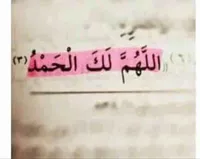 (٦) اللَّهُمَّ لَكَ الْحَمْدُ (٣)